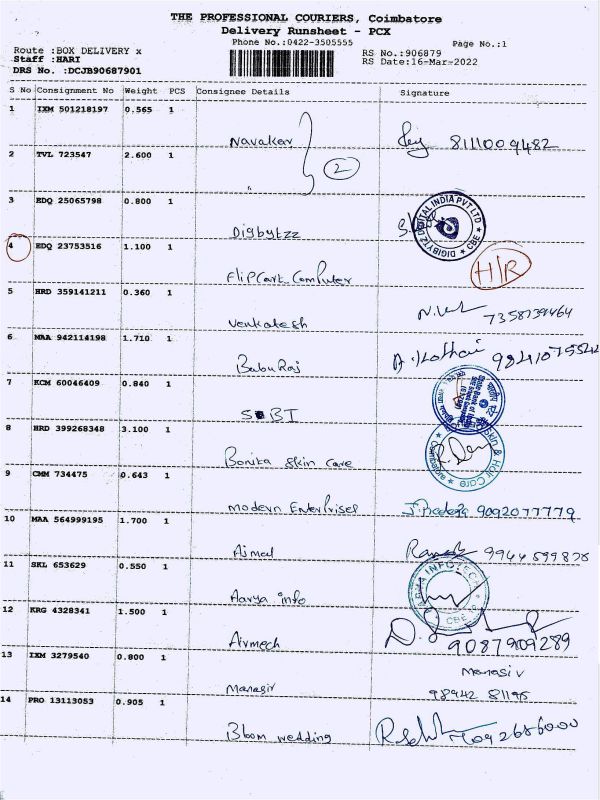 THE PROFESSIONAL COURIERS, Coimbatore
Delivery Runsheet - PCX
Phone No.:0422-3505555
Page No.:1
Route :BOX DELIVERY x
RS No.:906879
Staff :HARI
RS Date:16-Mar-2022
DRS No. :DCJB90687901
S No Consignment No Weight PCS Consignee Details Signature
1 IXM 501218197 0.565 1
Navakar 8111009482
2 TVL 723547 2.600 1
2
3 EDQ 25065798 0.800 1
Digbytzz
DIGIBYIZ DIGITAL INDIA PVT LTD CBE
4 EDQ 23753516 1.100 1
H/R
Flipcart Computer
5 HRD 359141211 0.360 1
Venkatesh 7358739464
6 MAA 942114198 1.710 1
BabuRaj A. Kothari 9841075542
7 KCM 60046409 0.840 1
State Bank of India
SBI
8 HRD 399268348 3.100 1
Skin & Hair Care
Bonita Skin Care
9 CMM 734475 0.643 1
Modern Enterprises 9092077779
10 MAA 564999195 1.700 1
Ajmal Ramesh 9944599878
11 SKL 653629 0.550 1
INFOTECH CBE
Aarya info
12 KRG 4328341 1.500 1
Airmech 9087909289
13 IXM 3279540 0.800 1
Manasiv
Manasiv 98942 81195
14 PRO 13113053 0.905 1
Bloom wedding